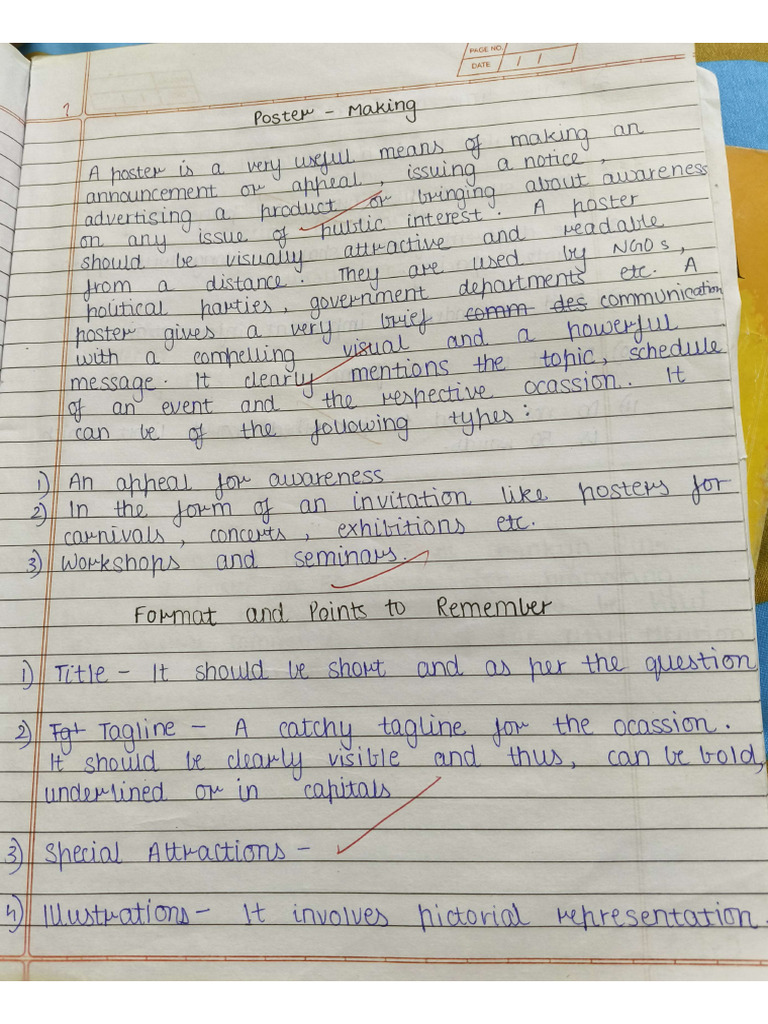 PAGE NO.
DATE / /
1
Poster - Making
A poster is a very useful means of making an
announcement or appeal, issuing a notice,
advertising a product or bringing about awareness
on any issue of public interest. A poster
should be visually attractive and readable
from a distance. They are used by NGOs,
political parties, government departments etc. A
poster gives a very brief comm des communication
with a compelling visual and a powerful
message. It clearly mentions the topic, schedule
of an event and the respective ocassion. It
can be of the following types:
1) An appeal for awareness
2) In the form of an invitation like posters for
carnivals, concerts, exhibitions etc.
3) Workshops and seminars.
Format and Points to Remember
1) Title - It should be short and as per the question
2) Tagline - A catchy tagline for the ocassion.
It should be clearly visible and thus, can be bold,
underlined or in capitals
3) Special Attractions -
4) Illustrations - It involves pictorial representation.